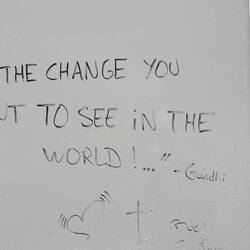 THE CHANGE YOU
UT TO SEE iN THE
WORLD!..." - Gandhi